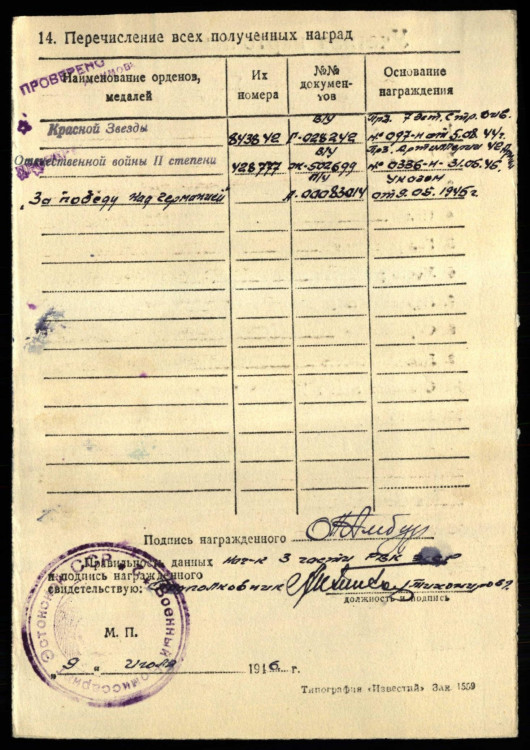 14. Перечисление всех полученных наград
ПРОВЕРЕНО
Наименование орденов,
медалей
Их
номера
№№
докумен-
тов
Основание
награждения
Красной Звезды
843842
в/у
Г-028242
Пр. 7 Эст. Стр. Див.
№ 097-н от 5.08.44 г.
Отечественной войны II степени
428777
в/у
Ж-502699
Пр. Артиллерии 42
№ 0336-н-31.05.45
„За победу над Германией"
п/у
А.00083014
Указом
от 9.05.1945 г
Подпись награжденного
Правильность данных нач-к 3 части РВК
и подпись награжденного
свидетельствую: подполковник Тихомиров
должность и подпись
СССР
Военный
М. П.
„9" 1946 г.
Типография «Известий» Зак 1559